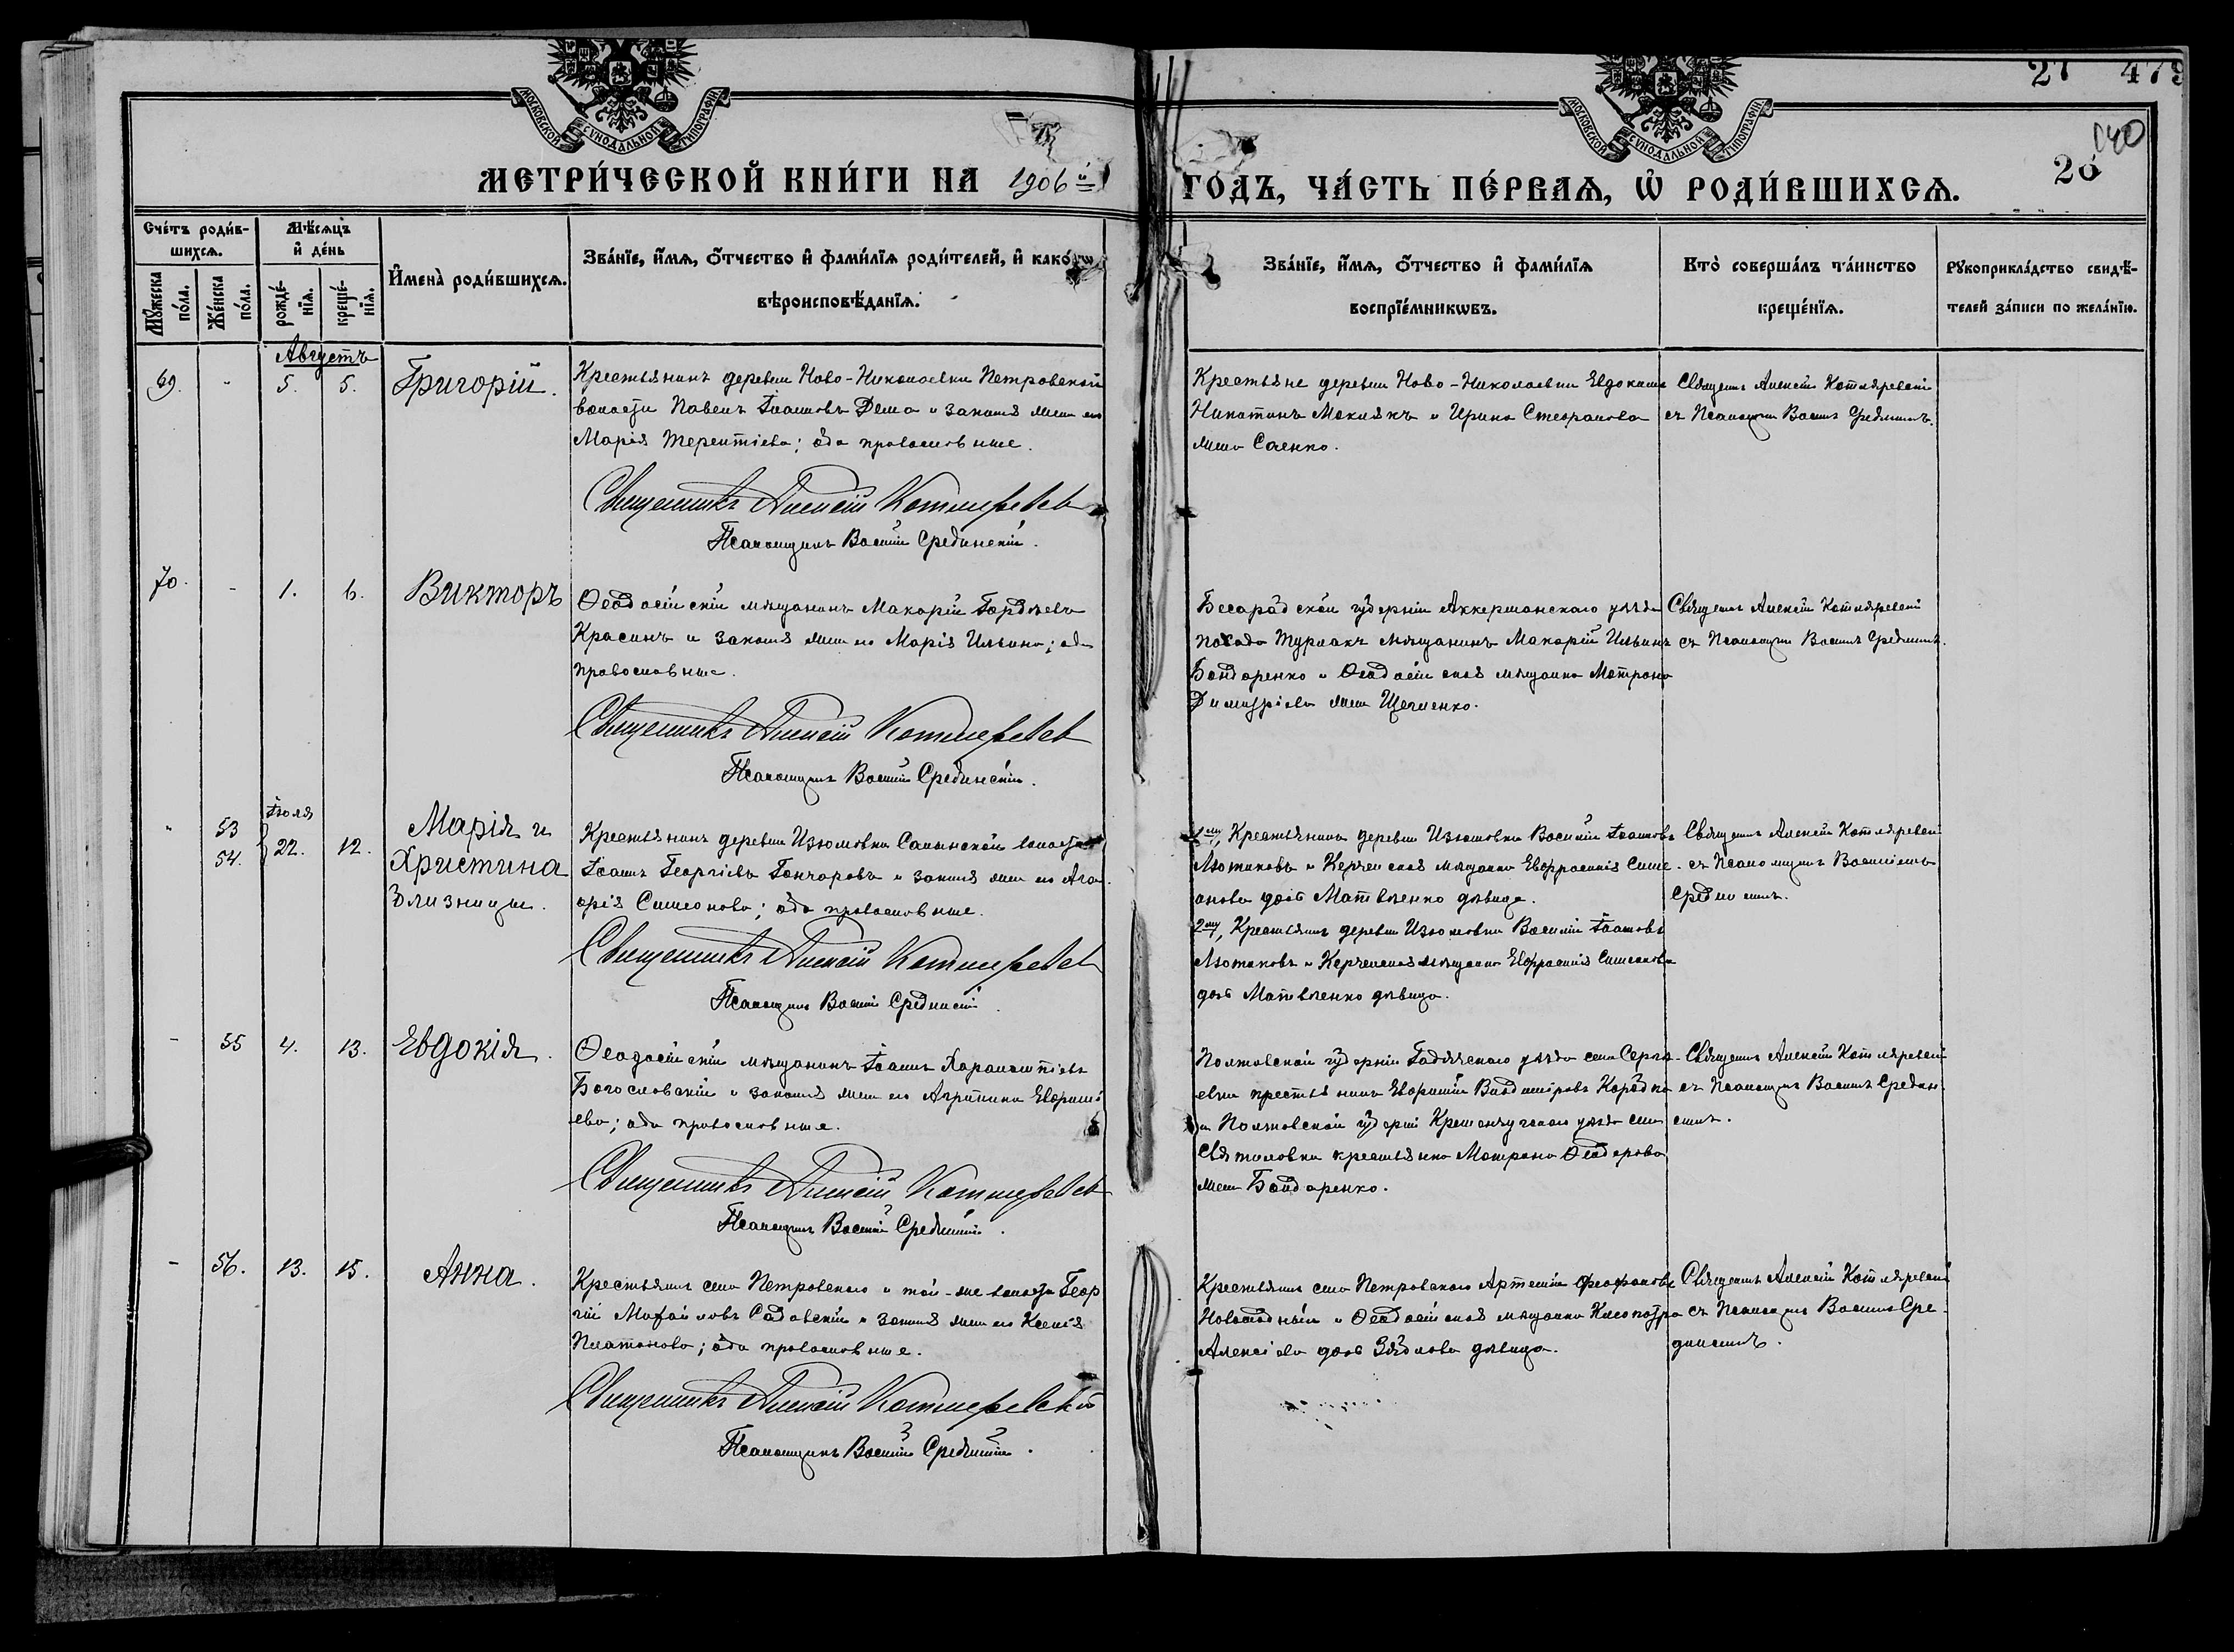 27 479
140
26
МОСКОВСКОЙ СѴНОДАЛЬНОЙ ТИПОГРАФІИ
МОСКОВСКОЙ СѴНОДАЛЬНОЙ ТИПОГРАФІИ
МЕТРИ́ЧЕСКОЙ КНИ́ГИ НА 1906й ГО́ДЪ, ЧА́СТЬ ПЕ́РВАѦ, Ѡ҆ РОДИ́ВШИХСѦ.
Сче́тъ роди́в-
шихсѧ.
Мꙋ́жеска по́ла.
Же́нска по́ла.
Мѣ́сѧцъ
и҆ де́нь
рожде́-нїѧ.
креще́-нїѧ.
И҆мена̀ роди́вшихсѧ.
Зва́нїе, и҆́мѧ, ѻ҆́тчество и҆ фамѝлїѧ роди́телей, и҆ како́гѡ
вѣроисповѣ́данїѧ.
Зва́нїе, и҆́мѧ, ѻ҆́тчество и҆ фами́лїѧ
воспрїе́мникѡвъ.
Кто̀ соверша́лъ та́инство
креще́нїѧ.
Рꙋкоприкла́дство свидѣ́-
телей за́писи по жела́нїю.
Августъ
69. - 5. 5. Григорій.
Крестьянинъ деревни Ново-Николаевки Петровской
волости Павелъ Іоанновъ Дема и законная жена его
Марія Терентіева; оба православные.
Священникъ Алексій Котляревскій
Псаломщикъ Василій Срединскій.
Крестьяне деревни Ново-Николаевки Евдокимъ
Никитинъ Мокіякъ и Ирина Стефанова
жена Саенко.
Священникъ Алексій Котляревскій
съ Псаломщикомъ Василіемъ Срединскимъ.
70. - 1. 6. Викторъ
Ѳеодосійскій мѣщанинъ Макарій Гордѣевъ
Красинъ и законная жена его Марія Ильина; оба
православные.
Священникъ Алексій Котляревскій
Псаломщикъ Василій Срединскій.
Бесарабской губерніи Аккерманскаго уѣзда
посада Турлакъ мѣщанинъ Макарій Ильинъ
Бондаренко и Ѳеодосійская мѣщанка Матрона
Димитріева жена Щегленко.
Священникъ Алексій Котляревскій
съ Псаломщикомъ Василіемъ Срединскимъ.
Іюля
- 53 54. 22. 12. Марія и
Христина
близницы.
Крестьянинъ деревни Изюмовки Салынской волости
Іоаннъ Георгіевъ Гончаровъ и законная жена его Ага-
фія Симеонова; оба православные.
Священникъ Алексій Котляревскій
Псаломщикъ Василій Срединскій.
1й, Крестьянинъ деревни Изюмовки Василій Іоанновъ
Лютиковъ и Керченская мѣщанка Евфросинія Симе-
онова дочь Матвѣенко дѣвица.
2й, Крестьянинъ деревни Изюмовки Василій Іоанновъ
Лютиковъ и Керченская мѣщанка Евфросинія Симеонова
дочь Матвѣенко дѣвица.
Священникъ Алексій Котляревскій
съ Псаломщикомъ Василіемъ
Срединскимъ.
- 55 4. 13. Евдокія.
Ѳеодосійскій мѣщанинъ Іоаннъ Харалампіевъ
Богословскій и законная жена его Агрипина Ефрим-
ева; оба православные.
Священникъ Алексій Котляревскій
Псаломщикъ Василій Срединскій.
Полтавской губерніи Гадячскаго уѣзда села Серге-
евки крестьянинъ Ефримій Владиміровъ Коробка
и Полтавской губерніи Кременчугскаго уѣзда села
Святиловки крестьянка Матрона Ѳеодорова
жена Бондаренко.
Священникъ Алексій Котляревскій
съ Псаломщикомъ Василіемъ Средин-
скимъ.
- 56. 13. 15. Анна.
Крестьянинъ села Петровскаго и той-же волости Геор-
гій Михайловъ Садовскій и законная жена его Ксенія
Платонова; оба православные.
Священникъ Алексій Котляревскій
Псаломщикъ Василій Срединскій.
Крестьянинъ села Петровскаго Артемій Феофановъ
и Ѳеодосійская мѣщанка Клеопатра
Алексіева дочь дѣвица.
Священникъ Алексій Котляревскій
съ Псаломщикомъ Василіемъ Сре-
динскимъ.